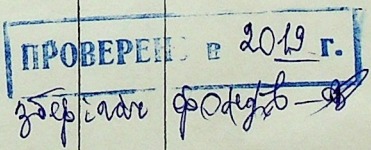 ПРОВЕРЕНО в 2019 г.
зберігач фондів